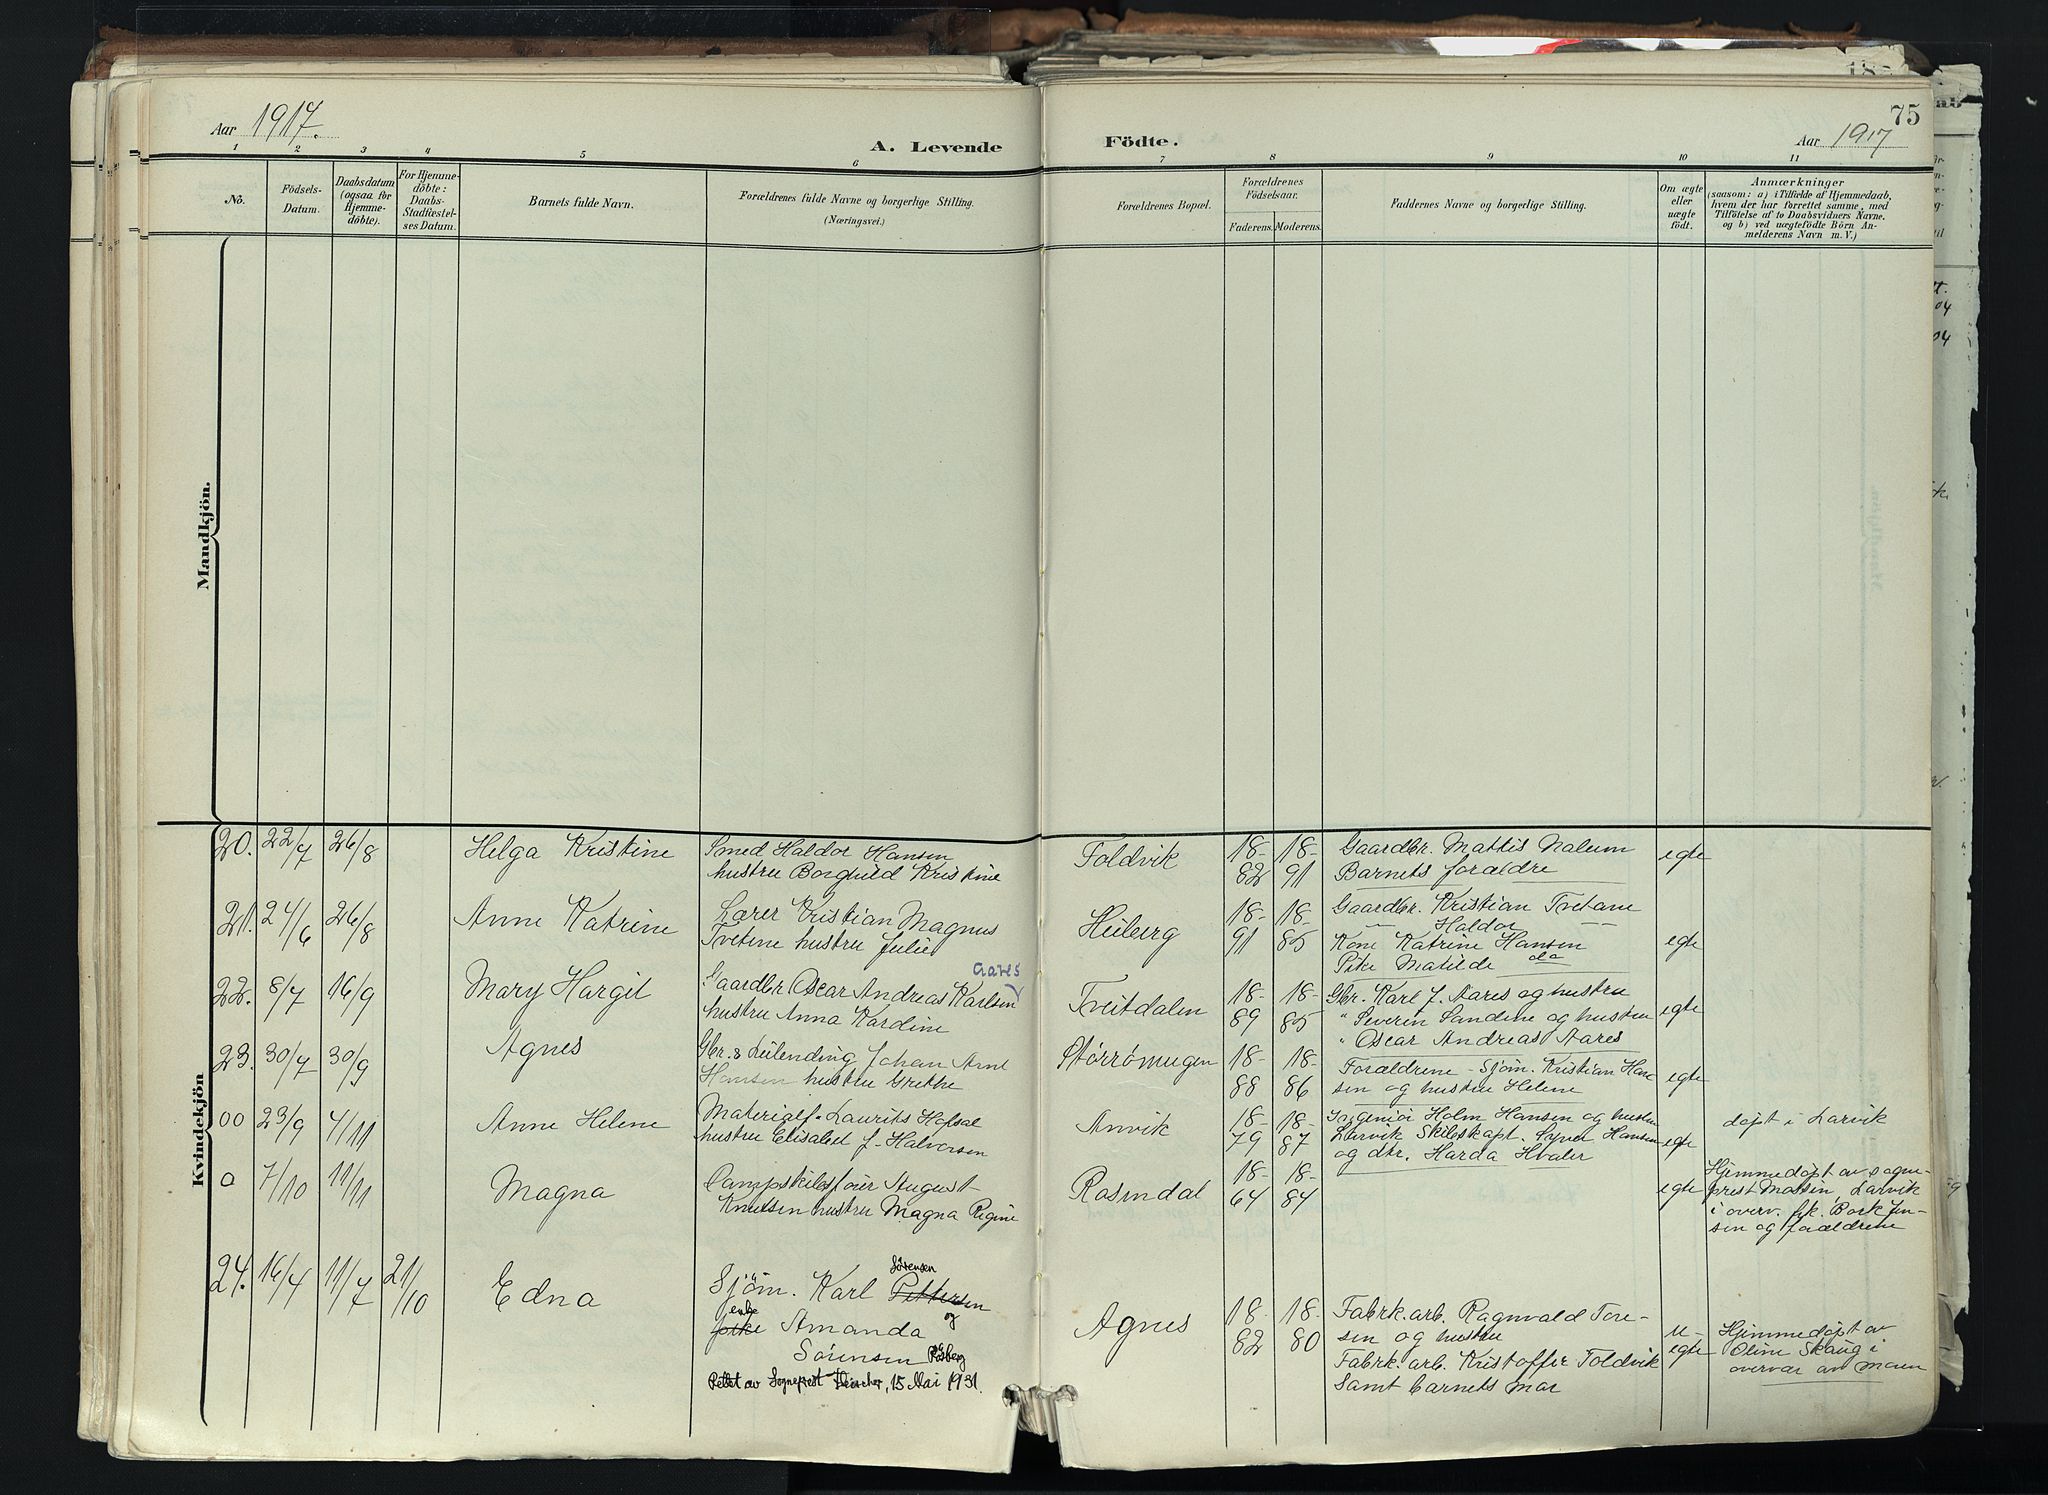 75
Aar 1917.
A. Levende
Födte.
Aar 1917
1 2 3 4 5 6 7 8 9 10 11
No.
Födsels-
Datum.
Daabsdatum
(ogsaa for
Hjemme-
döbte).
For Hjemme-
döbte:
Daabs-
Stadfæstel-
ses Datum.
Barnets fulde Navn.
Forældrenes fulde Navne og borgerlige Stilling.
(Næringsvei.)
Forældrenes Bopæl.
Forældrenes
Födselsaar.
Faderens. Moderens.
Faddernes Navne og borgerlige Stilling.
Om ægte
eller
uægte
født.
Anmærkninger
(saasom: a) i Tilfælde af Hjemmedaab,
hvem der har forrettet samme, med
Tilföielse af to Daabsvidners Navne.
og b) ved uægtefödte Börn An-
melderens Navn m. V.)
Mandkjön.
Kvindekjön
20. 22/7 26/8 Helga Kristine
Smed Haldor Hansen
hustru Borghild Kristine
Foldvik
18- 18-
82 91
Gaardbr. Mattis Nalum
Barnets forældre
egte
21. 24/6 26/8 Anne Katrine
Lærer Kristian Magnus
Tvetene hustru Julie
Heiberg
18- 18-
91 85
Gaardbr. Kristian Tvetane
— Haldor —
Kone Katrine Hansen
Pike Matilde do
egte
22. 8/7 16/9 Mary Hargit
Aares
Gaardbr Oscar Andreas Karlsen
hustru Anna Kardine
Tveitdalen
18- 18-
89 85
Gbr. Karl J. Aares og hustru
" Severin Sandene og hustru
" Oscar Andreas Aares
egte
23. 30/7 30/9 Agnes
Gbr. & Leilending Johan Arnt
Hansen hustru Grethe
Størrømugen
18- 18-
88 86
Forældrene - Sjøm. Kristian Han-
sen og hustru Helene
egte
00 23/9 4/11 Anne Helene
Materialf. Laurits Hofsal
hustru Elisabet f. Halvorsen
Anvik
18- 18-
79 87
Ingeniør Holm Hansen og hustru
Larvik Skibskapt. Hansen
og dtr. Harda Hvaler
egte
døpt i Larvik
0 7/10 11/11 Magna
August
Knutsen hustru Magna Regine
Rosendal
18- 18-
64 84
egte
Hjemmedøpt av sogne-
prest Larvik
i overv. frk. Bork Jen-
sen og forældrene
24. 16/4 11/7 21/10 Edna
Sørensen
Sjöm. Karl Pettersen
enke og
pike Amanda
Sørensen Rosberg
Rettet av Sogneprest 15 Mai 1931.
Agnes
18- 18-
82 80
Fabrk. arb. Ragnvald Tore-
sen og hustru
Fabrk. arb. Kristoffer Foldvik
Samt barnets mor
u-
egte
Hjemmedøpt av
Oline Skaug i
overvær av moren